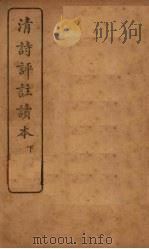 清詩評註讀本
下
mtoou.info